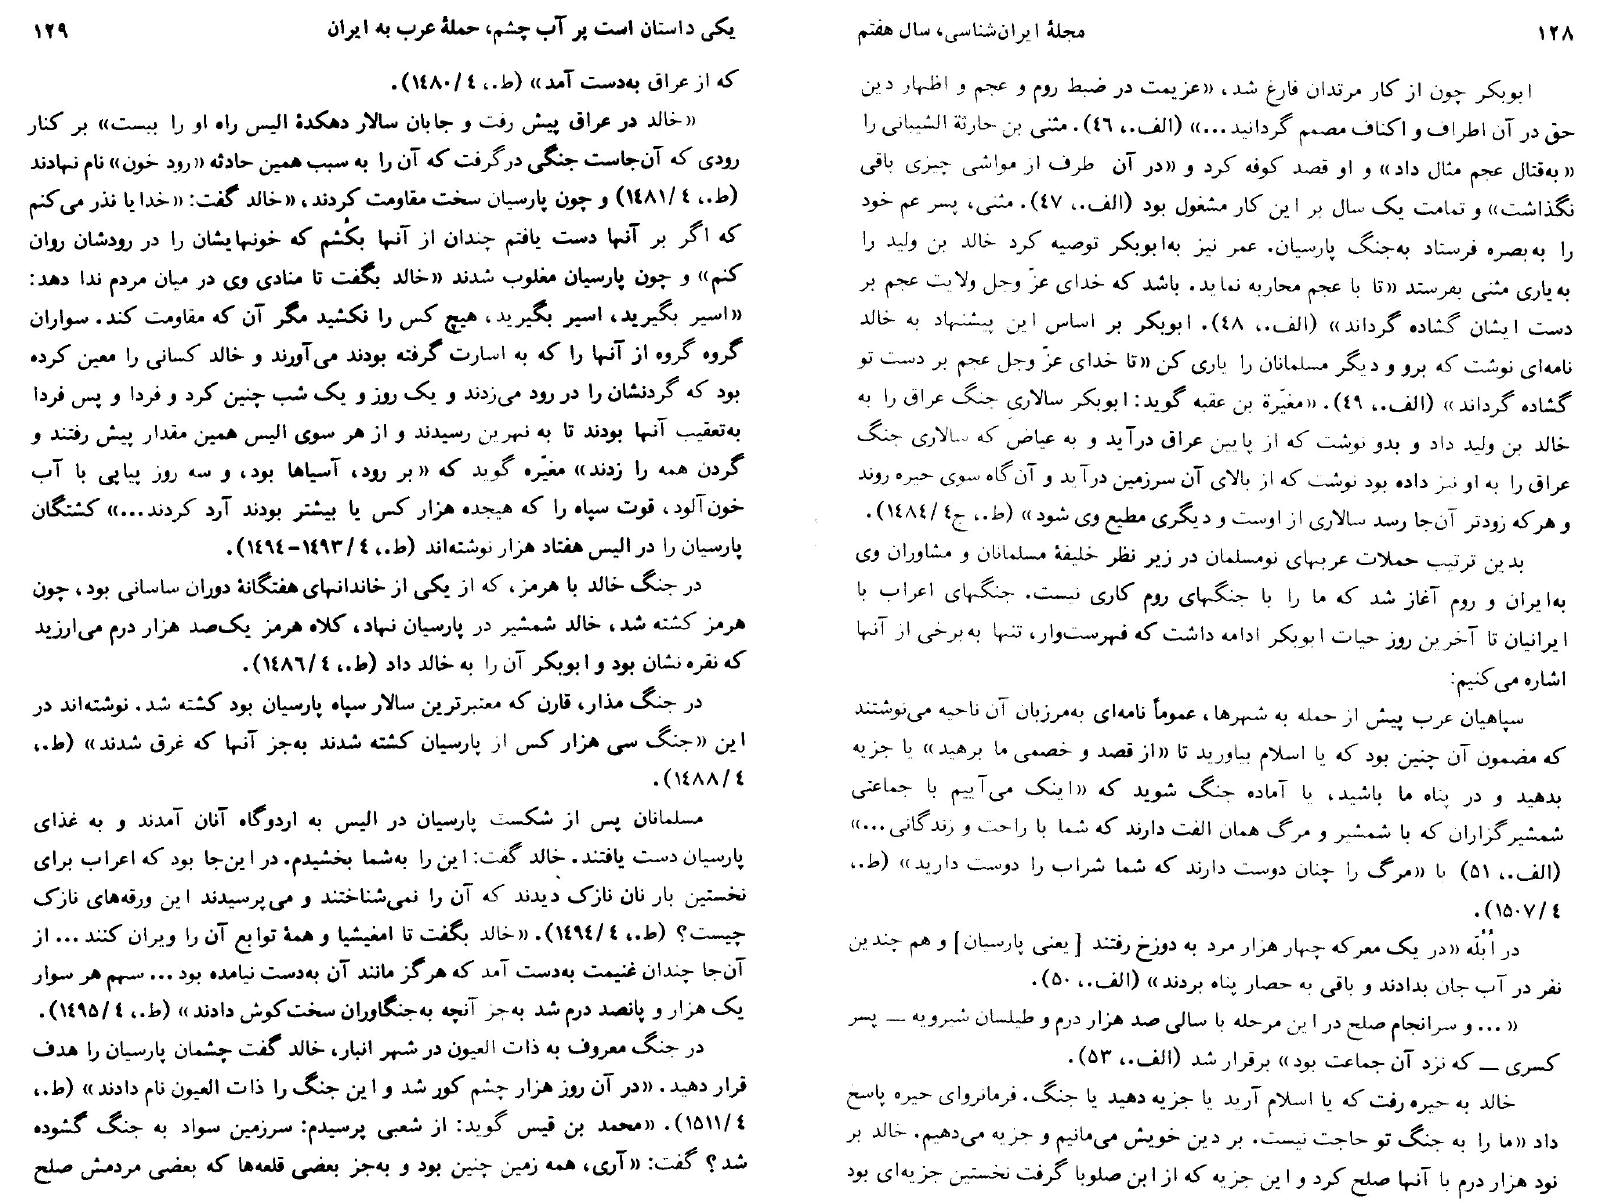 ۱۲۸
مجلهٔ ایران‌شناسی، سال هفتم
ابوبکر چون از کار مرتدان فارغ شد، «عزیمت در ضبط روم و عجم و اظهار دین
حق در آن اطراف و اکناف مصمم گردانید...» (الف.، ۴۶). مثنی بن حارثة الشیبانی را
«به‌قتال عجم مثال داد» و او قصد کوفه کرد و «در آن طرف از مواشی چیزی باقی
نگذاشت» و تمامت یک سال بر این کار مشغول بود (الف.، ۴۷). مثنی، پسر عم خود
را به‌بصره فرستاد به‌جنگ پارسیان. عمر نیز به‌ابوبکر توصیه کرد خالد بن ولید را
به‌یاری مثنی بفرستد «تا با عجم محاربه نماید. باشد که خدای عزّ وجل ولایت عجم بر
دست ایشان گشاده گرداند» (الف.، ۴۸). ابوبکر بر اساس این پیشنهاد به خالد
نامه‌ای نوشت که برو و دیگر مسلمانان را یاری کن «تا خدای عزّ وجل عجم بر دست تو
گشاده گرداند» (الف.، ۴۹). «مغیّرة بن عقبه گوید: ابوبکر سالاری جنگ عراق را به
خالد بن ولید داد و بدو نوشت که از پایین عراق درآید و به عیاض که سالاری جنگ
عراق را به او نیز داده بود نوشت که از بالای آن سرزمین درآید و آن‌گاه سوی حیره روند
و هرکه زودتر آن‌جا رسد سالاری از اوست و دیگری مطیع وی شود» (ط.، ج۴/۱۴۸۴).
بدین ترتیب حملات عربهای نومسلمان در زیر نظر خلیفهٔ مسلمانان و مشاوران وی
به‌ایران و روم آغاز شد که ما را با جنگهای روم کاری نیست. جنگهای اعراب با
ایرانیان تا آخرین روز حیات ابوبکر ادامه داشت که فهرست‌وار، تنها به‌برخی از آنها
اشاره می‌کنیم:
سپاهیان عرب پیش از حمله به شهرها، عموماً نامه‌ای به‌مرزبان آن ناحیه می‌نوشتند
که مضمون آن چنین بود که یا اسلام بیاورید تا «از قصد و خصمی ما برهید» یا جزیه
بدهید و در پناه ما باشید، یا آماده جنگ شوید که «اینک می‌آییم با جماعتی
شمشیرگزاران که با شمشیر و مرگ همان الفت دارند که شما با راحت و زندگانی...»
(الف.، ۵۱) یا «مرگ را چنان دوست دارند که شما شراب را دوست دارید» (ط.،
۴/۱۵۰۷).
در اُبُلّه «در یک معرکه چهار هزار مرد به دوزخ رفتند [یعنی پارسیان] و هم چندین
نفر در آب جان بدادند و باقی به حصار پناه بردند» (الف.، ۵۰).
«... و سرانجام صلح در این مرحله با سالی صد هزار درم و طیلسان شیرویه — پسر
کسری — که نزد آن جماعت بود» برقرار شد (الف.، ۵۳).
خالد به حیره رفت که یا اسلام آرید یا جزیه دهید یا جنگ. فرمانروای حیره پاسخ
داد «ما را به جنگ تو حاجت نیست. بر دین خویش می‌مانیم و جزیه می‌دهیم. خالد بر
نود هزار درم با آنها صلح کرد و این جزیه که از ابن صلوبا گرفت نخستین جزیه‌ای بود
یکی داستان است پر آب چشم، حملهٔ عرب به ایران
۱۲۹
که از عراق به‌دست آمد» (ط.، ۴/۱۴۸۰).
«خالد در عراق پیش رفت و جابان سالار دهکدهٔ الیس راه او را ببست» بر کنار
رودی که آن‌جاست جنگی درگرفت که آن را به سبب همین حادثه «رود خون» نام نهادند
(ط.، ۴/۱۴۸۱) و چون پارسیان سخت مقاومت کردند، «خالد گفت: «خدایا نذر می‌کنم
که اگر بر آنها دست یافتم چندان از آنها بکُشم که خونهایشان را در رودشان روان
کنم» و چون پارسیان مغلوب شدند «خالد بگفت تا منادی وی در میان مردم ندا دهد:
«اسیر بگیرید، اسیر بگیرید، هیچ کس را نکشید مگر آن که مقاومت کند. سواران
گروه گروه از آنها را که به اسارت گرفته بودند می‌آورند و خالد کسانی را معین کرده
بود که گردنشان را در رود می‌زدند و یک روز و یک شب چنین کرد و فردا و پس فردا
به‌تعقیب آنها بودند تا به نهرین رسیدند و از هر سوی الیس همین مقدار پیش رفتند و
گردن همه را زدند» مغیّره گوید که «بر رود، آسیاها بود، و سه روز پیاپی با آب
خون‌آلود، قوت سپاه را که هیجده هزار کس یا بیشتر بودند آرد کردند...» کشتگان
پارسیان را در الیس هفتاد هزار نوشته‌اند (ط.، ۴/۱۴۹۳-۱۴۹۴).
در جنگ خالد با هرمز، که از یکی از خاندانهای هفتگانهٔ دوران ساسانی بود، چون
هرمز کشته شد، خالد شمشیر در پارسیان نهاد، کلاه هرمز یک‌صد هزار درم می‌ارزید
که نقره نشان بود و ابوبکر آن را به خالد داد (ط.، ۴/۱۴۸۶).
در جنگ مذار، قارن که معتبرترین سالار سپاه پارسیان بود کشته شد. نوشته‌اند در
این «جنگ سی هزار کس از پارسیان کشته شدند به‌جز آنها که غرق شدند» (ط.،
۴/۱۴۸۸).
مسلمانان پس از شکست پارسیان در الیس به اردوگاه آنان آمدند و به غذای
پارسیان دست یافتند. خالد گفت: این را به‌شما بخشیدم. در این‌جا بود که اعراب برای
نخستین بار نان نازک دیدند که آن را نمی‌شناختند و می‌پرسیدند این ورقه‌های نازک
چیست؟ (ط.، ۴/۱۴۹۴). «خالد بگفت تا امغیشیا و همهٔ توابع آن را ویران کنند... از
آن‌جا چندان غنیمت به‌دست آمد که هرگز مانند آن به‌دست نیامده بود... سهم هر سوار
یک هزار و پانصد درم شد به‌جز آنچه به‌جنگاوران سخت‌کوش دادند» (ط.، ۴/۱۴۹۵).
در جنگ معروف به ذات العیون در شهر انبار، خالد گفت چشمان پارسیان را هدف
قرار دهید. «در آن روز هزار چشم کور شد و این جنگ را ذات العیون نام دادند» (ط.،
۴/۱۵۱۱). «محمد بن قیس گوید: از شعبی پرسیدم: سرزمین سواد به جنگ گشوده
شد؟ گفت: «آری، همه زمین چنین بود و به‌جز بعضی قلعه‌ها که بعضی مردمش صلح